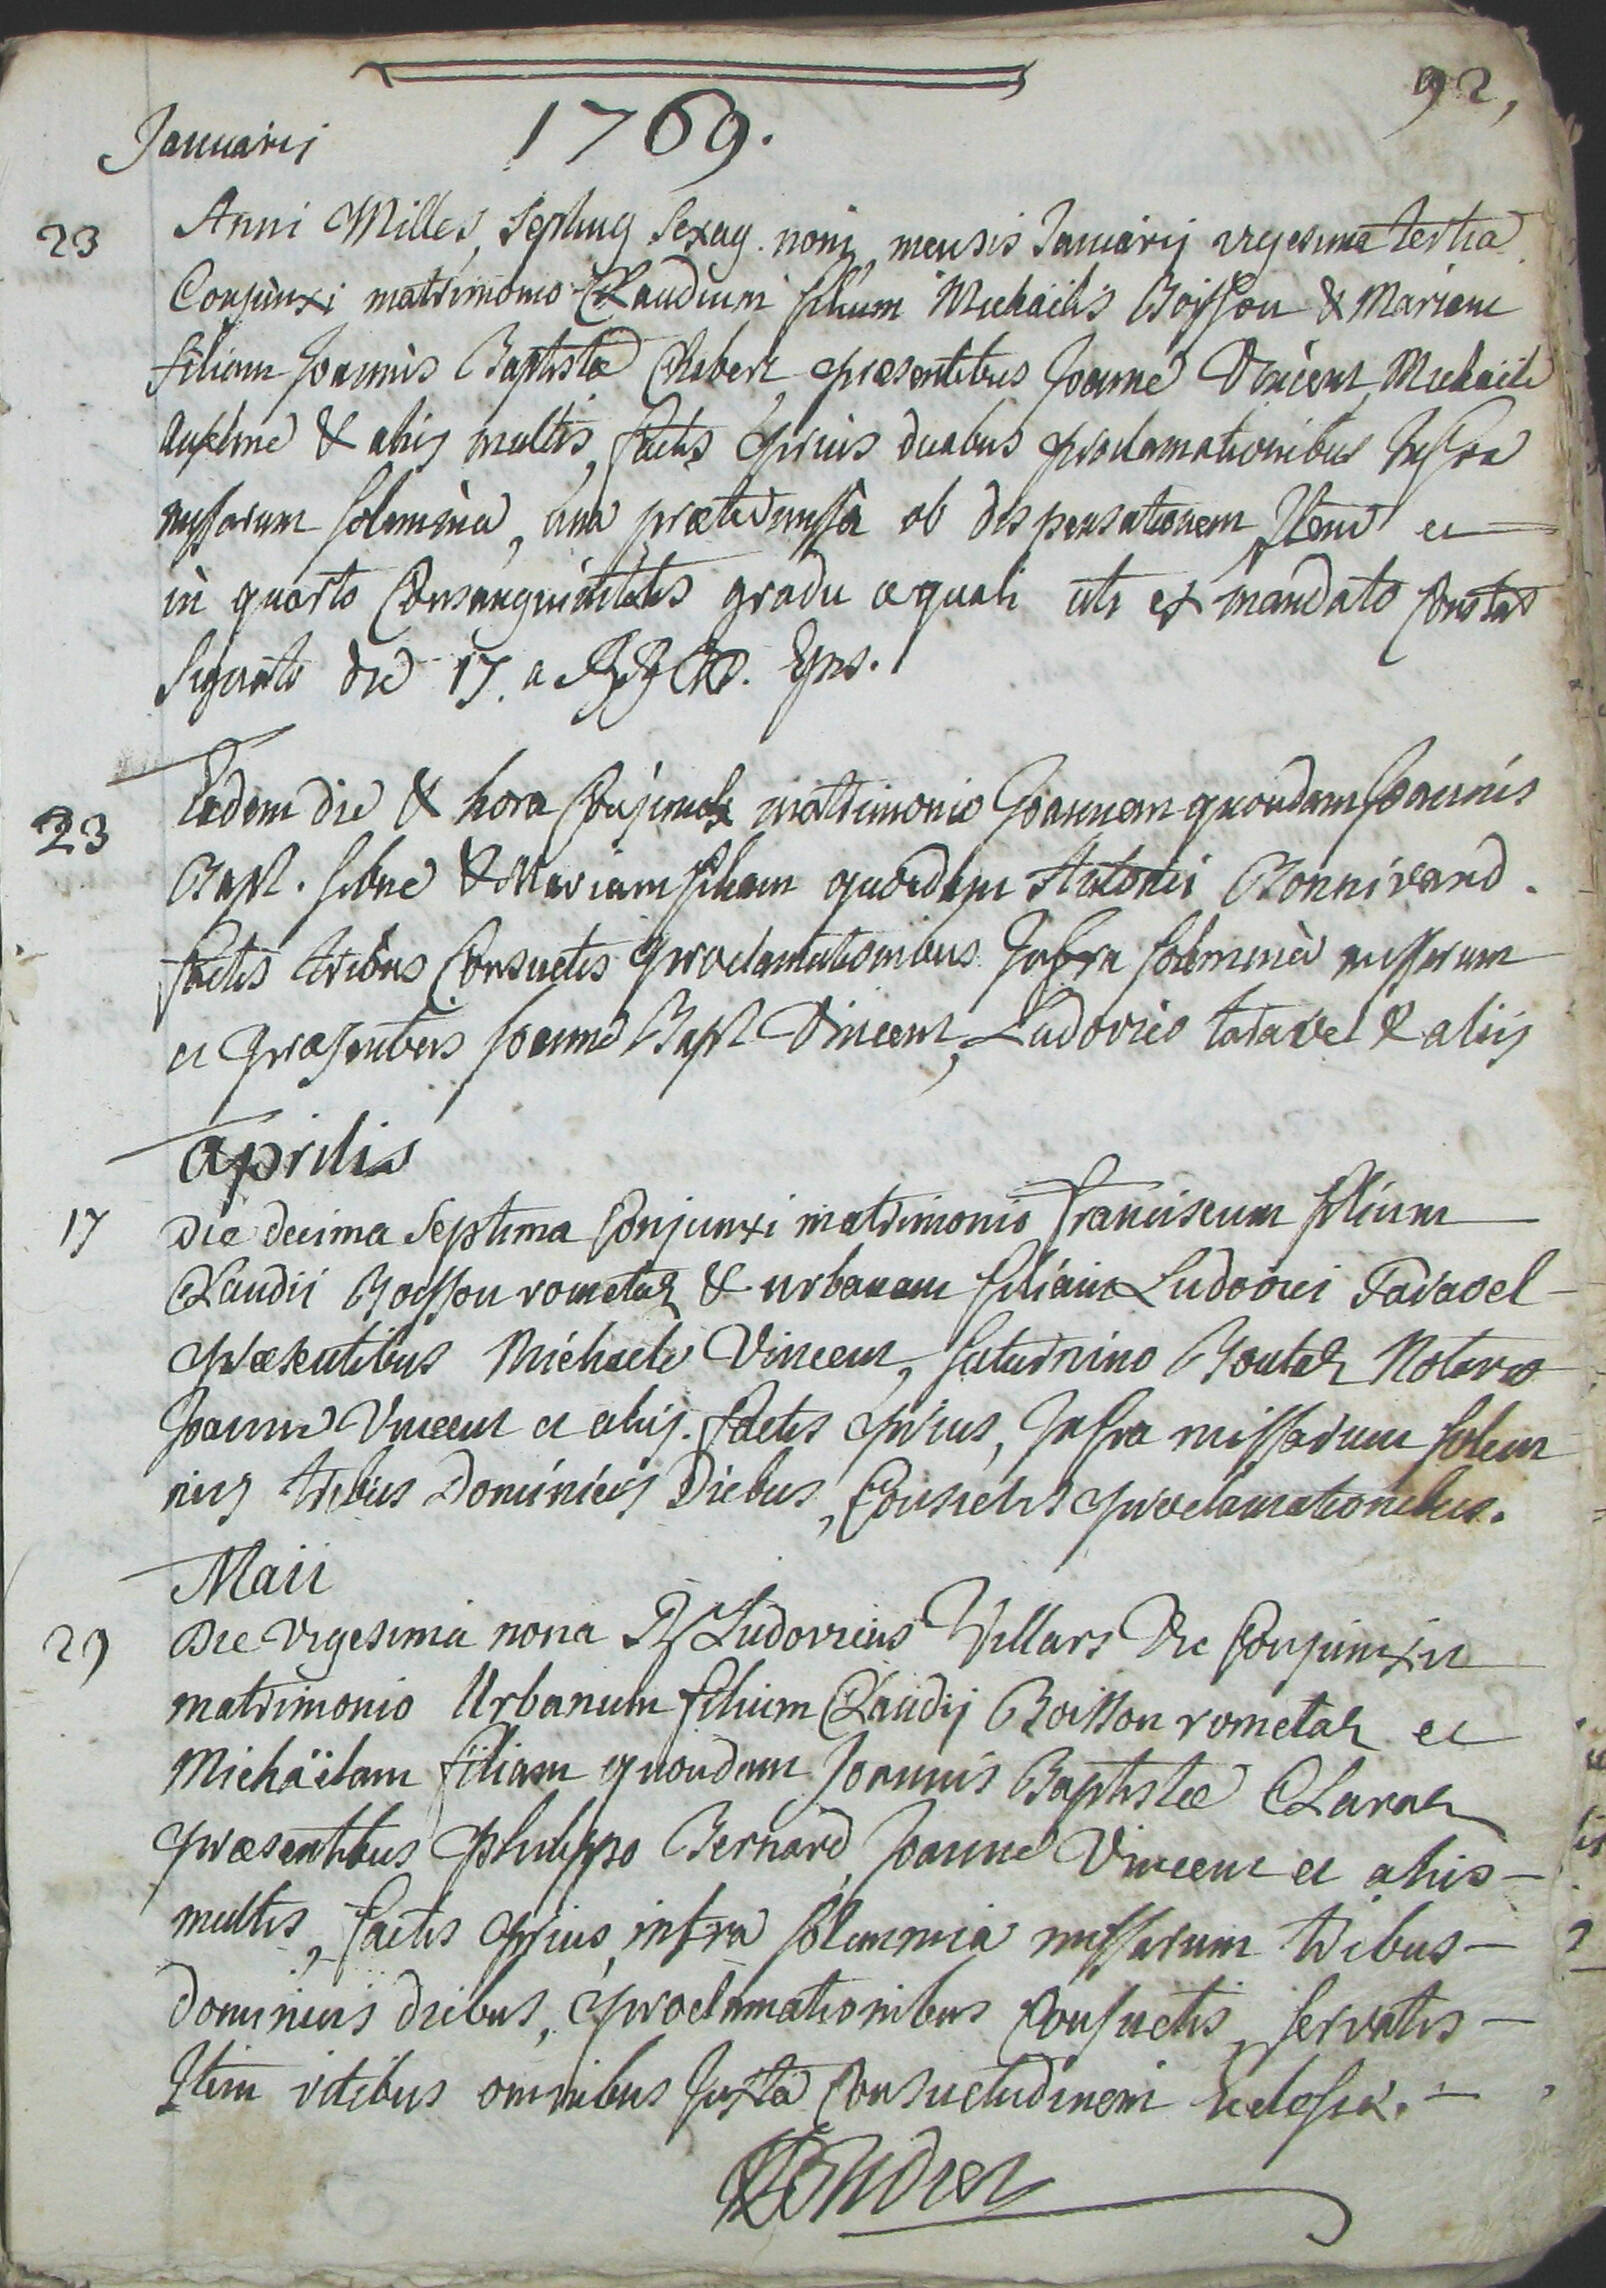 92,
1769.
Januarij
23 Anni Milles, septing sexag. noni, mensis Januarij vigesima tertia
Conjunxi matrimonio Claudium filium Michaëlis Boisson & Mariam
filiam Joannis Baptistæ praesentibus Joanne Vincent Michaële
& alijs multis, factis prius duabus proclamationibus Infra
missarum solemnia, una prætermissa ob dispensationem, Item et
in quarto Consanguinitatis gradu æquali uti ex mandato Constat
signato die 17. a Eps.
23 Eadem die & hora Conjuncti matrimonio Joannem quondam Joannis
Bapt. & Mariam filiam quondam Antonii Bonnivard.
factis tribus Consuetis proclamationibus Infra solemnia missarum
et præsentibus Joanne Bapt Vincent, Ludovico taravel & alijs
aprilis
17 Die decima septima Conjunxi matrimonio Franciscum filium
Claudii Boisson rometas & urbanam filiam Ludovici Taravel
præsentibus Michaele Vincent, saturnino Notario
Joanne Vincent et alijs. factis prius, Infra missarum solem
nia tribus Dominicis Diebus, Consuetis proclamationibus.
Maii
29 Die vigesima nona R Ludovicus Villars Vic Conjunxit
matrimonio Urbanum filium Claudij Boisson rometas et
Michaëlam filiam quondam Joannis Baptistæ Claras
præsentibus philippo Bernard, Joanne Vincent et aliis
multis, factis prius, infra solemnia missarum tribus
dominicis diebus, proclamationibus Consuetis, servatis
Item ritibus omnibus Juxta Consuetudinem Ecclesiæ.